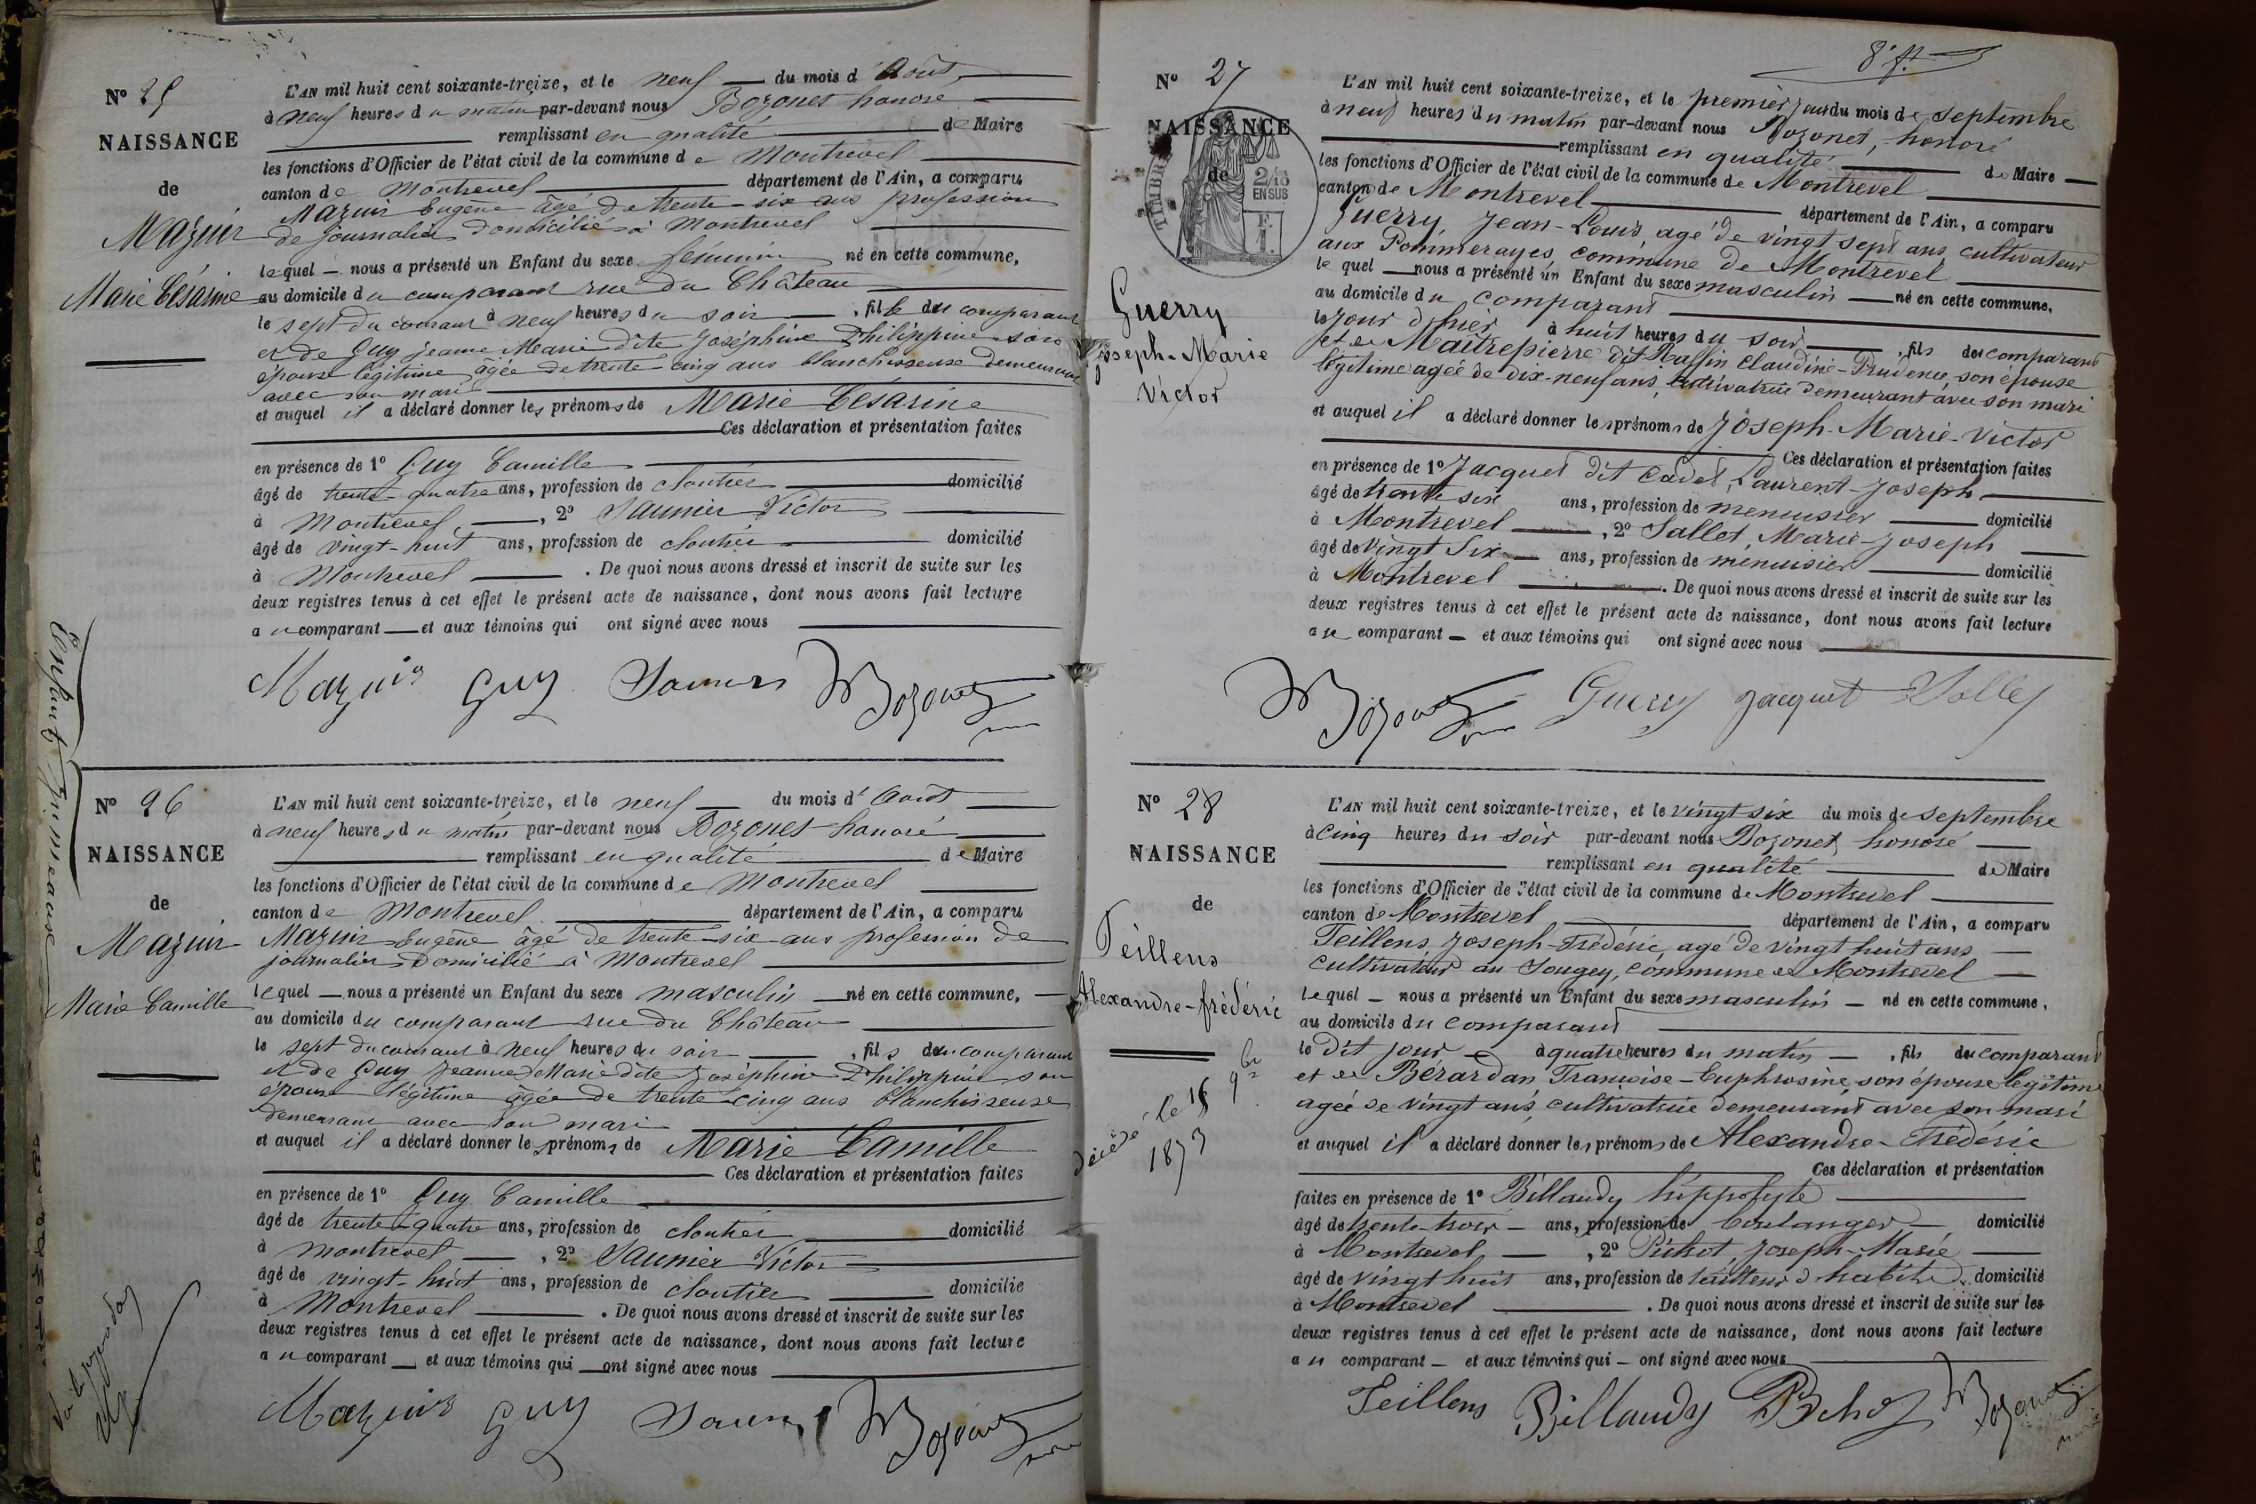 N° 25
NAISSANCE
de
Mazuir
Marie Césarine
L'AN mil huit cent soixante-treize, et le neuf du mois d'Août
à neuf heures du matin par-devant nous Bozonet honoré
remplissant en qualité de Maire
les fonctions d'Officier de l'état civil de la commune de Montrevel
canton de Montrevel département de l'Ain, a comparu
Mazuir Eugène âgé de trente-six ans profession
de journalier domicilié à Montrevel
lequel nous a présenté un Enfant du sexe féminin né en cette commune,
au domicile du comparant rue du Château
le sept du courant à neuf heures du soir, fille du comparant
et de Guy Jeanne Marie dite Joséphine Philippine son
épouse légitime âgée de trente-cinq ans blanchisseuse demeurant
avec son mari
et auquel il a déclaré donner les prénoms de Marie Césarine
Ces déclaration et présentation faites
en présence de 1° Guy Camille
âgé de trente-quatre ans, profession de cloutier domicilié
à Montrevel, 2° Saunier Victor
âgé de vingt-huit ans, profession de cloutier domicilié
à Montrevel. De quoi nous avons dressé et inscrit de suite sur les
deux registres tenus à cet effet le présent acte de naissance, dont nous avons fait lecture
au comparant et aux témoins qui ont signé avec nous
Mazuir Guy Saunier Bozonet
Enfants Jumeaux
N° 26
NAISSANCE
de
Mazuir
Marie Camille
L'AN mil huit cent soixante-treize, et le neuf du mois d'Août
à neuf heures du matin par-devant nous Bozonet honoré
remplissant en qualité de Maire
les fonctions d'Officier de l'état civil de la commune de Montrevel
canton de Montrevel département de l'Ain, a comparu
Mazuir Eugène âgé de trente-six ans profession de
journalier domicilié à Montrevel
lequel nous a présenté un Enfant du sexe masculin né en cette commune,
au domicile du comparant rue du Château
le sept du courant à neuf heures du soir, fils du comparant
et de Guy Jeanne Marie dite Joséphine Philippine son
épouse légitime âgée de trente-cinq ans blanchisseuse
demeurant avec son mari
et auquel il a déclaré donner les prénoms de Marie Camille
Ces déclaration et présentation faites
en présence de 1° Guy Camille
âgé de trente-quatre ans, profession de cloutier domicilié
à Montrevel, 2° Saunier Victor
âgé de vingt-huit ans, profession de cloutier domicilié
à Montrevel. De quoi nous avons dressé et inscrit de suite sur les
deux registres tenus à cet effet le présent acte de naissance, dont nous avons fait lecture
au comparant et aux témoins qui ont signé avec nous
Mazuir Guy Saunier Bozonet
8e ft
N° 27
NAISSANCE
de
TIMBRE
2/10
EN SUS
Guerry
Joseph-Marie
Victor
L'AN mil huit cent soixante-treize, et le premier jour du mois de septembre
à neuf heures du matin par-devant nous Bozonet, honoré
remplissant en qualité de Maire
les fonctions d'Officier de l'état civil de la commune de Montrevel
canton de Montrevel département de l'Ain, a comparu
Guerry Jean-Louis agé de vingt sept ans cultivateur
aux Pommerayes, commune de Montrevel
lequel nous a présenté un Enfant du sexe masculin né en cette commune.
au domicile du comparant
le jour d'hier à huit heures du soir, fils du comparant
et de Maitrepierre dit Raffin Claudine-Prudence, son épouse
légitime agée de dix-neuf ans, cultivatrice demeurant avec son mari
et auquel il a déclaré donner les prénoms de Joseph-Marie-Victor
Ces déclaration et présentation faites
en présence de 1° Jacquet dit Cadet, Laurent-Joseph
âgé de trente six ans, profession de menuisier domicilié
à Montrevel, 2° Sallet, Marie-Joseph
âgé de vingt six ans, profession de menuisier domicilié
à Montrevel. De quoi nous avons dressé et inscrit de suite sur les
deux registres tenus à cet effet le présent acte de naissance, dont nous avons fait lecture
au comparant et aux témoins qui ont signé avec nous
Bozonet Guerry Jacquet Sallet
N° 28
NAISSANCE
de
Teillens
Alexandre-frédéric
décédé le 15 9bre
1873
L'AN mil huit cent soixante-treize, et le vingt six du mois de septembre
à cinq heures du soir par-devant nous Bozonet, honoré
remplissant en qualité de Maire
les fonctions d'Officier de l'état civil de la commune de Montrevel
canton de Montrevel département de l'Ain, a comparu
Teillens Joseph-frédéric, agé de vingt huit ans
cultivateur au Sougey, commune de Montrevel
lequel nous a présenté un Enfant du sexe masculin né en cette commune.
au domicile du comparant
le dit jour à quatre heures du matin, fils du comparant
et de Bérardan Francoise-Euphrosine, son épouse légitime
agée de vingt ans, cultivatrice demeurant avec son mari
et auquel il a déclaré donner les prénoms de Alexandre-frédéric
Ces déclaration et présentation
faites en présence de 1° Billaudy hippolyte
âgé de trente-trois ans, profession de boulanger domicilié
à Montrevel, 2° Pichot, Joseph-Marie
âgé de vingt huit ans, profession de tailleur d'habits domicilié
à Montrevel. De quoi nous avons dressé et inscrit de suite sur les
deux registres tenus à cet effet le présent acte de naissance, dont nous avons fait lecture
au comparant et aux témoins qui ont signé avec nous
Teillens Billaudy Pichot Bozonet